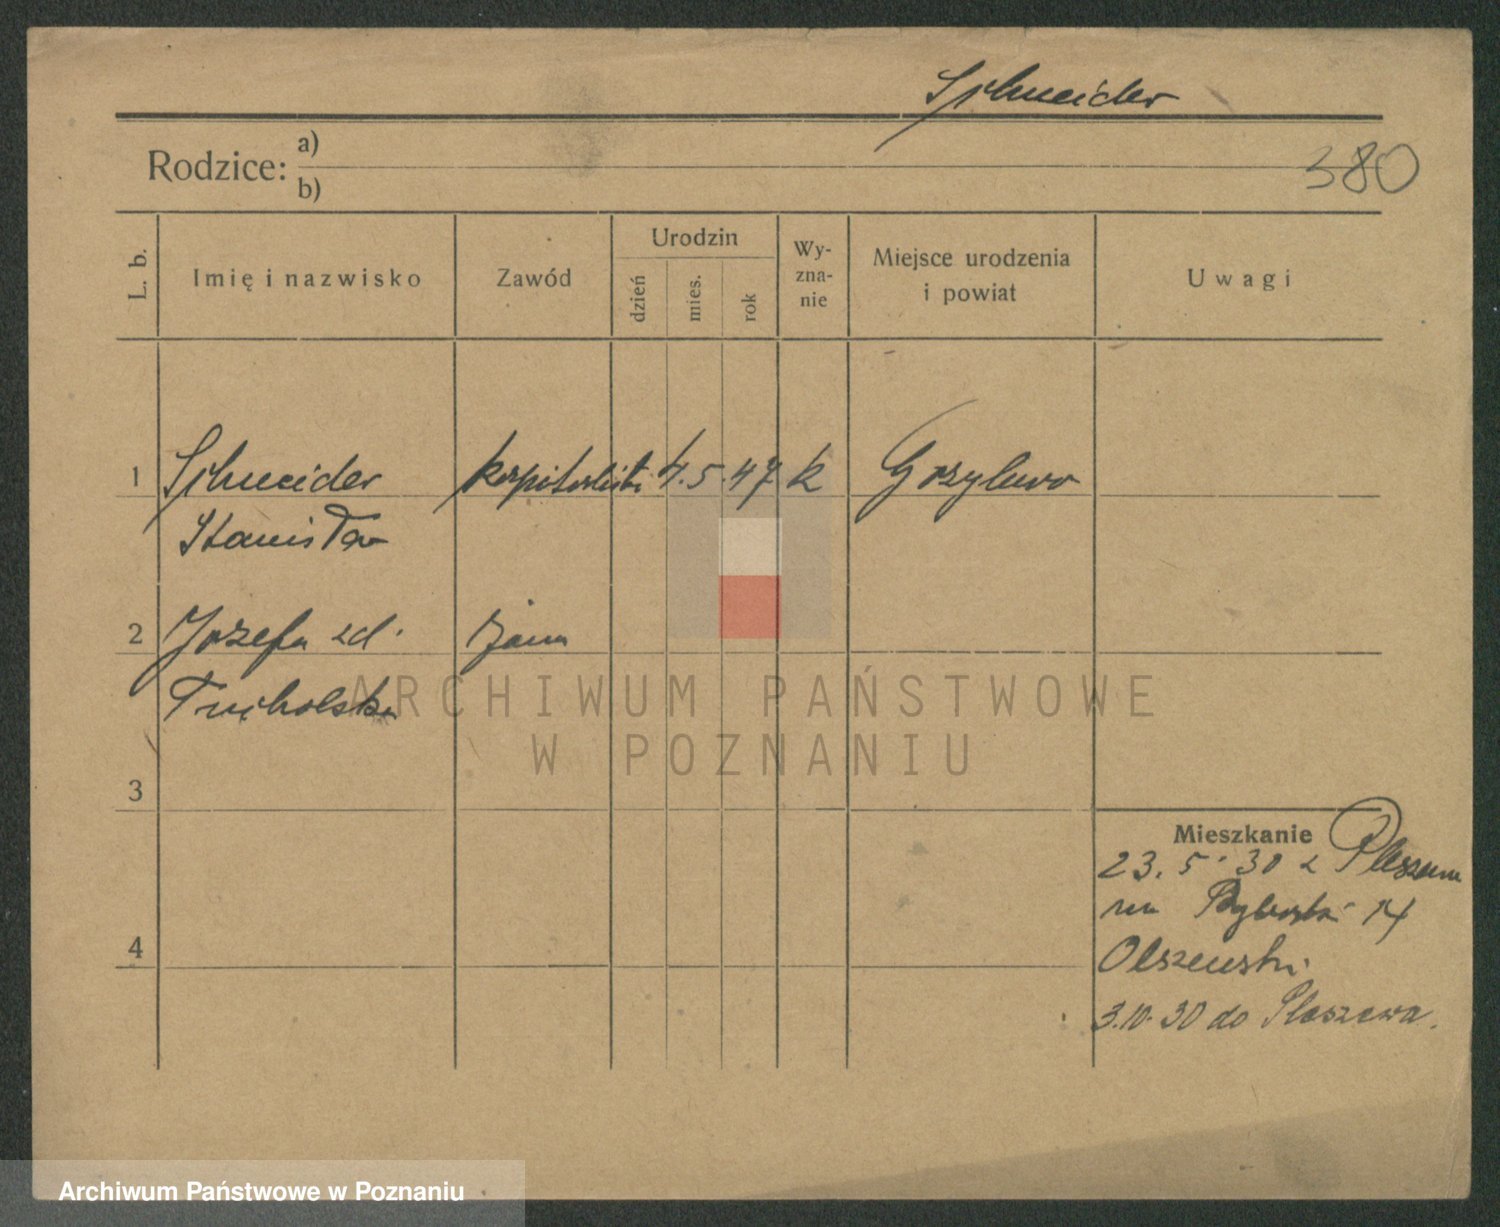 Schneider
380
Rodzice: a)
b)
L. b.
Imię i nazwisko
Zawód
Urodzin
dzień
mies.
rok
Wy-
zna-
nie
Miejsce urodzenia
i powiat
Uwagi
1 Schneider kapitalista 4. 5. 47 k
Stanisław
2 Józefa zd. żona
Tucholska
ARCHIWUM PAŃSTWOWE
W POZNANIU
3
Mieszkanie
23. 5. 30 z
na 14
4 Olszewski
3.10.30 do Pleszewa.
Archiwum Państwowe w Poznaniu